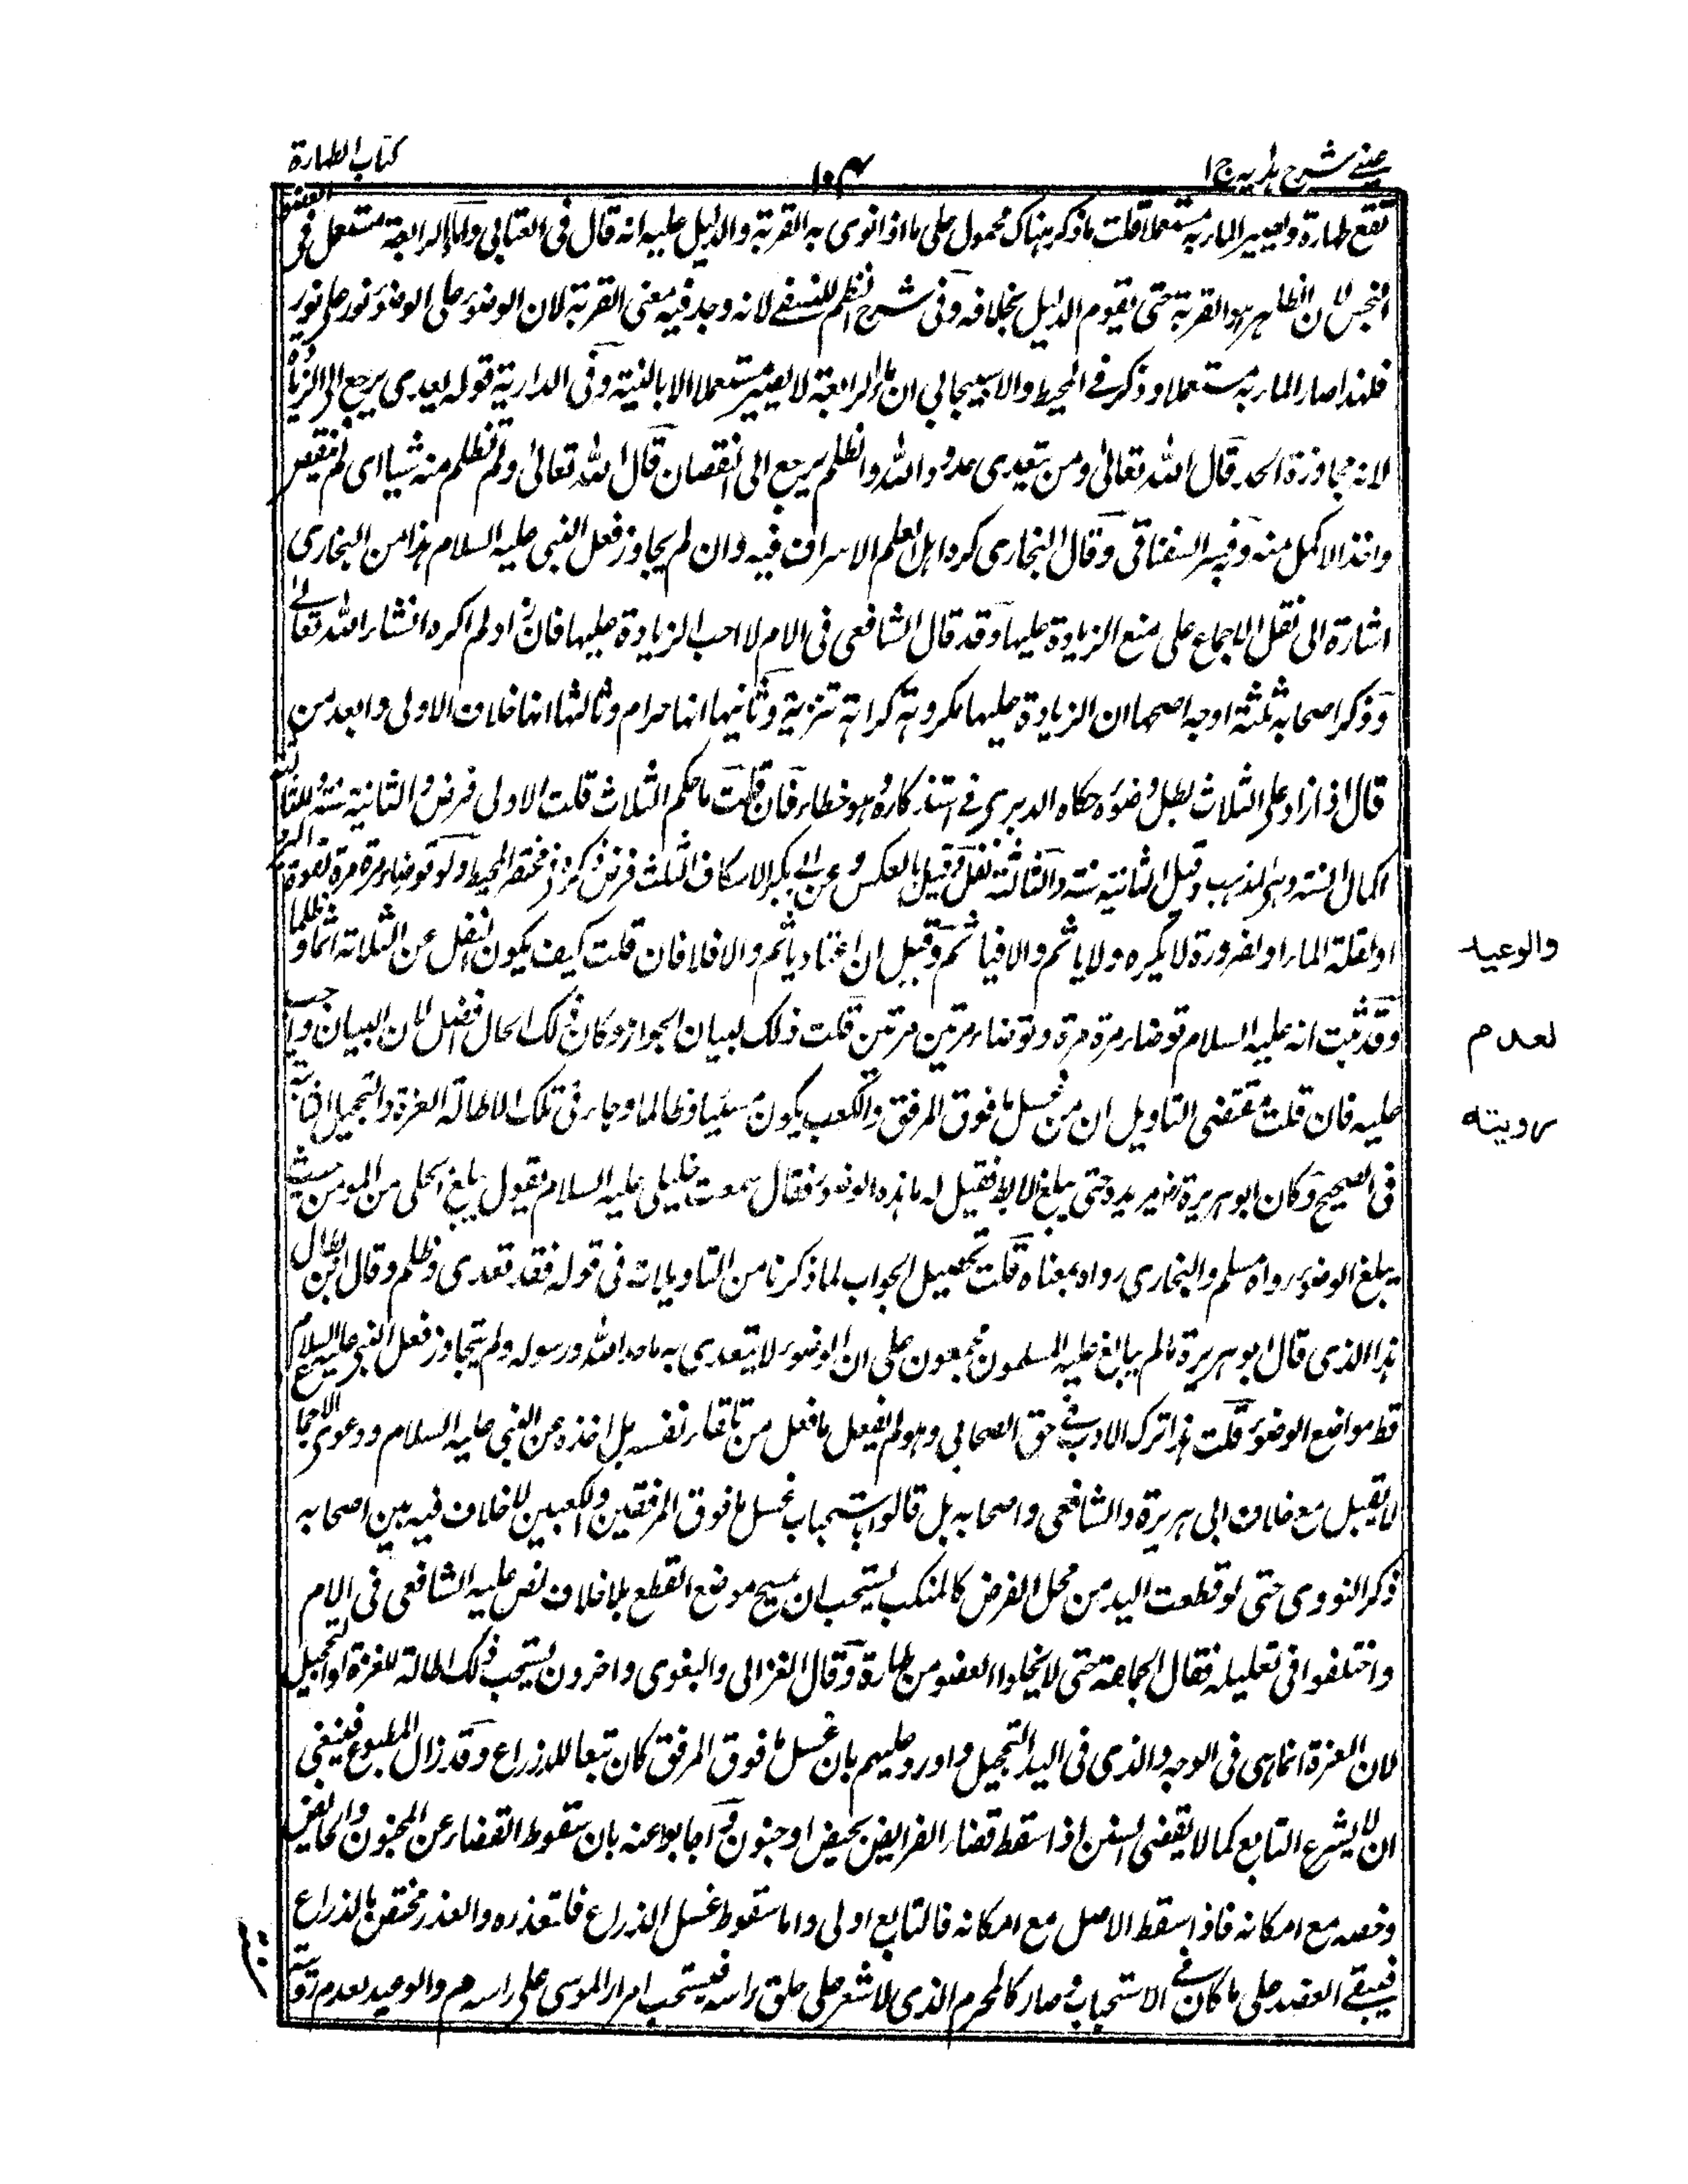 عینے شرح ہدایہ ج ۱
۱۰۴
كتاب الطهارة
تقع طهارة ويصير الماء به مستعملا قلت ما ذكر هناك محمول على ما اذا نوى به القربة والدليل عليه انه قال فى العتابي واما الرابعة مستعمل فى العضو
النجس لان الظاهر هو القربة حتى يقوم الدليل بخلافه وفى شرح النظم للنسفے لانه وجد فيه معنى القربة لان الوضوء على الوضوء نور على نور
فلهذا صار الماء به مستعملا وذكر فے المحيط والاسبيجابي ان ماء الرابعة لا يصير مستعملا الا بالنية وفى الدارية قوله تعدى يرجع الى الزيادة
لانه مجاوزة الحد قال الله تعالىٰ ومن يتعدى حدود الله والظلم يرجع الى النقصان قال الله تعالىٰ ولم تظلم منه شيا اى لم تنقص
واخذ الاكمل منه وفيه السغناقى وقال البخارى كره اهل العلم الاسراف فيه وان لم يجاوز فعل النبى عليه السلام هذا من البخارى
اشارة الى نقل الاجماع على منع الزيادة عليها وقد قال الشافعى فى الام لا احب الزيادة عليها فان زاد لم اكره انشاء الله تعالےٰ
وذكر اصحابه ثلثة اوجه اصحها ان الزيادة عليها مكروهة كراهة تنزيه وثانيها انها حرام وثالثها انها خلاف الاولى وابعد من
قال اذا زاد على الثلاث بطل وضوءه حكاه الدبرى فے استذكاره وهو خطاء فان قلت ما حكم الثلاث قلت الاولى فرض والثانية سنة والثالثة
اكمال السنة وهى المذهب وقيل الثانية سنة والثالثة نفل وقيل بالعكس وعن ابى بكر الاسكاف الثلث فرض ذكره فى مختصر المحيط ولو توضاء مرة مرة لعزة
او لقلة الماء او لضرورة لا يكره ولا ياثم والا فياثم وقيل ان اعتاد ياثم والا فلا فان قلت كيف يكون النقل عن الثلاثة اثما وظلما
وقد ثبت انه عليه السلام توضاء مرة مرة وتوضاء مرتين مرتين قلت ذلك لبيان الجواز وكان ذلك الحال افضل لان البيان واجب
عليه فان قلت مقتضى التاويل ان من غسل ما فوق المرفق والكعب يكون مسيئا وظالما وجاء فى تلك الاطالة الغرة والتحجيل الثابتة
فى الصحيح وكان ابو هريرة رضى يمد يده حتى يبلغ الابط فقيل له ما هذه الوضوء فقال سمعت خليلى عليه السلام يقول يبلغ الحلى من المومن حيث
يبلغ الوضوء رواه مسلم والبخارى رواه بمعناه قلت تحصيل الجواب لما ذكرنا من التاويلات فى قوله فقد تعدى وظلم وقال ابن بطال
هذا الذى قال ابو هريرة ما لم يبالغ عليه المسلمون مجمعون على ان الوضوء لا يتعدى به ما حد الله ورسوله ولم يتجاوز فعل النبى عليه السلام
قط مواضع الوضوء قلت هذا ترك الادب فے حق الصحابى وهو لم يفعل ما فعل من تلقاء نفسه بل اخذه عن النبى عليه السلام ودعوى الاجماع
لا يقبل مع خلاف ابى هريرة والشافعى واصحابه بل قالوا باستحباب غسل ما فوق المرفقين والكعبين لا خلاف فيه بين اصحابه
ذكر النووى حتى لو قطعت اليد من محل الفرض كالمنكب يستحب ان يمسح موضع القطع بلا خلاف نص عليه الشافعى فى الام
واختلفوا فى تعليله فقال الجماعة حتى لا يخلوا العضو من طهارة وقال الغزالى والبغوى واخرون يستحب ذلك اطالة للغرة لو التحجيل
لان الغرة انما هى فى الوجه والذى فى اليد التحجيل واورد عليهم بان غسل ما فوق المرفق كان تبعا للذراع وقد زال المتبوع فينبغى
ان لا يشرع التابع كما لا يقضى السنن اذا سقط قضاء الفرايض بحيض او جنون واجابوا عنه بان سقوط القضاء عن المجنون والحايض
رخصه مع امكانه فاذا سقط الاصل مع امكانه فالتابع اولى واما سقوط غسل الذراع فلتعذره والعذر مختص بالذراع
فيبقے العضد على ما كان فے الاستحباب وصار كالمحرم الذى لا شعر على حلق راسه فيستحب امرار الموسى على راسه م والوعيد لعدم رويته
والوعيد
لعدم
رويته